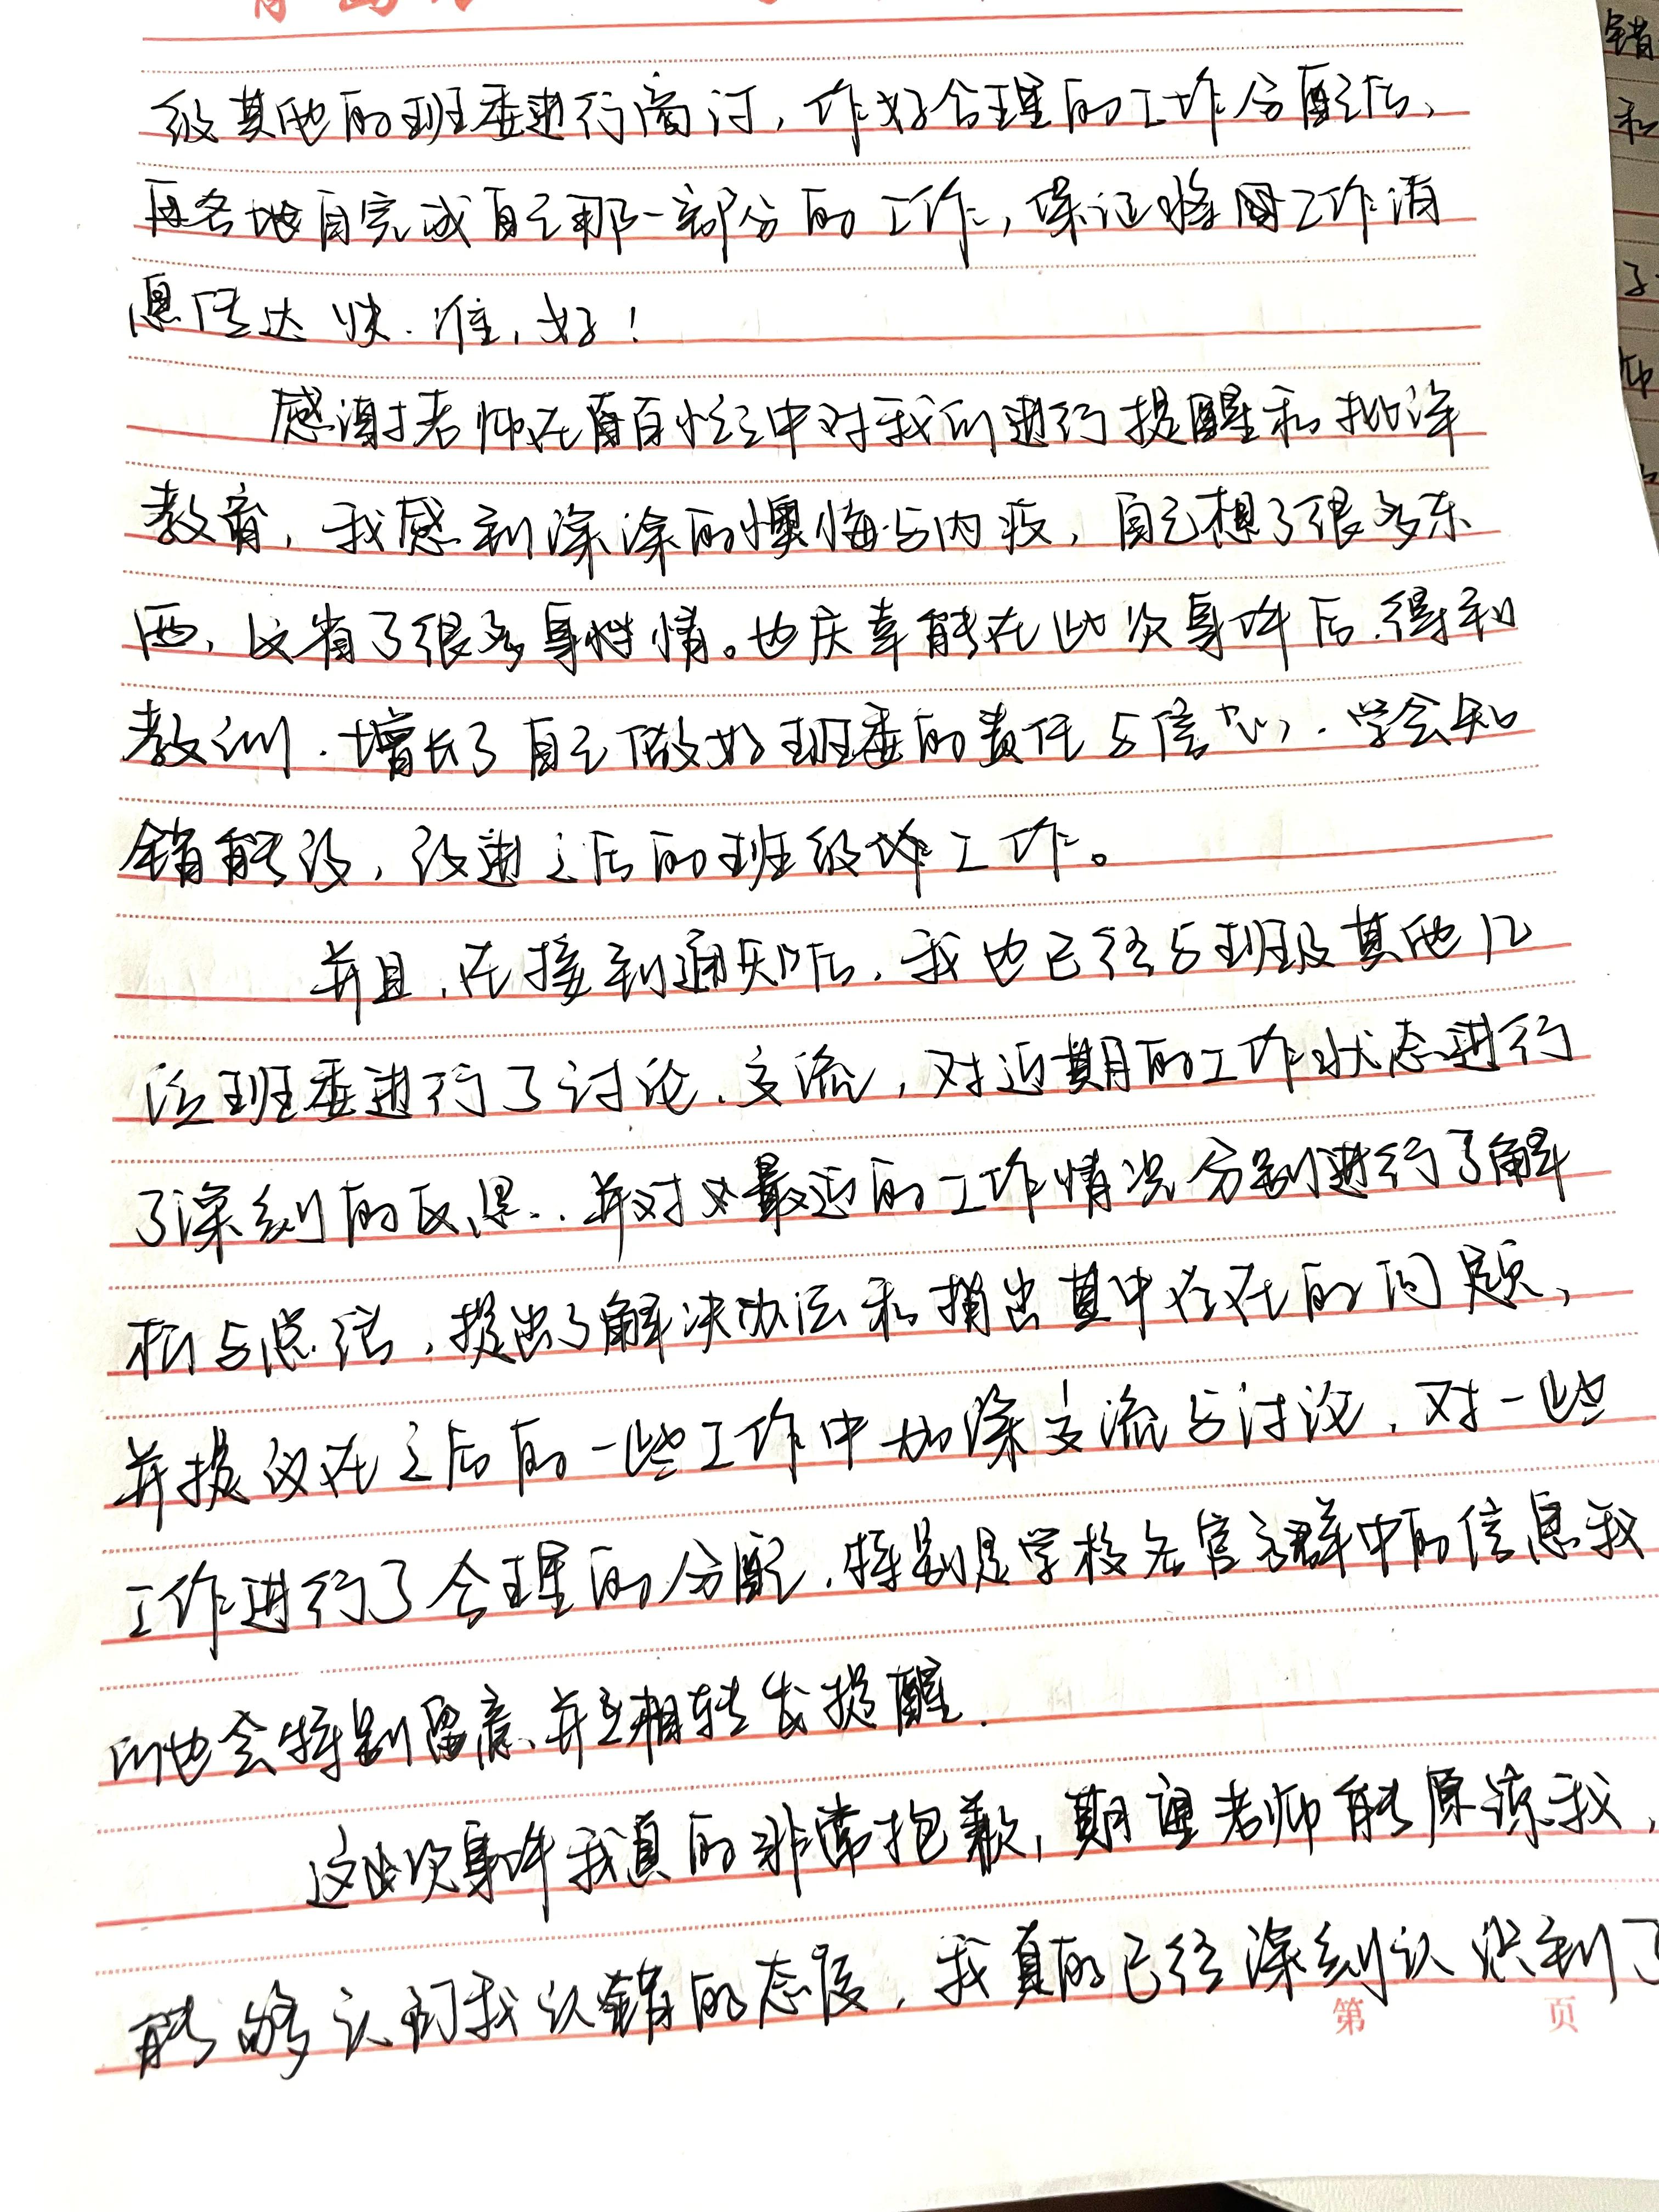 级其他的班委进行商讨，作好合理的工作分配后，
再各地自完成自己那一部分的工作，保证将工作消
息传达快、准、好！
感谢老师在百忙之中对我们进行提醒和批评
教育，我感到深深的懊悔与内疚，自己想了很多东
西，反省了很多事情。也庆幸能在此次事件后，得到
教训，增长了自己做好班委的责任与信心，学会知
错能改，改进之后的班级工作。
并且，在接到通知后，我也已经与班级其他几
位班委进行了讨论、交流，对近期的工作状态进行
了深刻的反思，并对最近的工作情况分别进行了解
析与总结，提出了解决办法和指出其中存在的问题，
并提议在之后的一些工作中加深交流与讨论，对一些
工作进行了合理的分配，特别是学校官方群中的信息我
们也会特别留意、并互相转发提醒。
这次事件我真的非常抱歉，期望老师能原谅我，
能够认同我认错的态度，我真的已经深刻认识到了
第 页
错
和